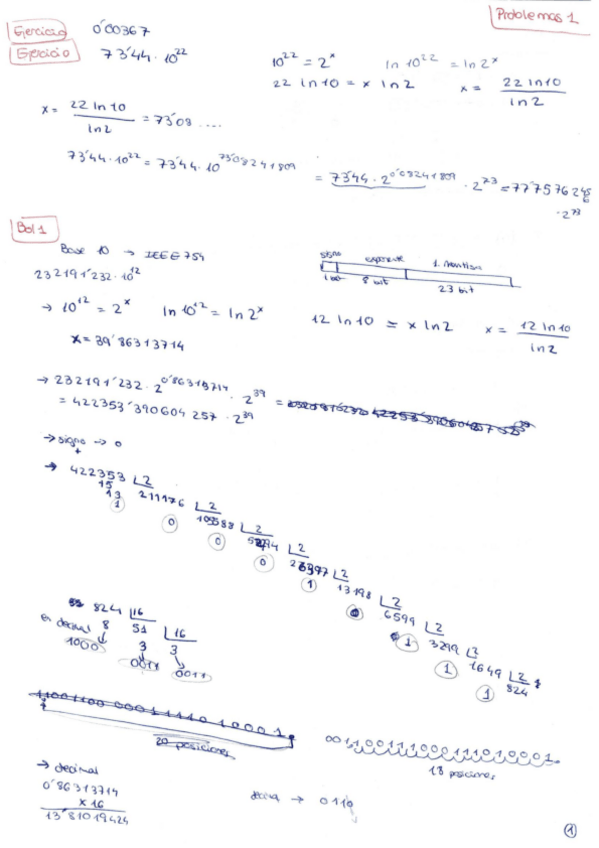 Problemas 1
Ejercicio 0'00367
Ejercicio 73'44 · 10^22
10^22 = 2^x ln 10^22 = ln 2^x
22 ln 10 = x ln 2 x = 22 ln 10 / ln 2
x = 22 ln 10 / ln 2 = 73'08 ....
73'44 · 10^22 = 73'44 · 10^73'08241809 = 73'44 · 2^0'08241809 · 2^73 = 77'7576245
· 2^73
Bol 1
Base 10 → IEEE 754
signo exponente 1. Mantisa
1 bit 8 bit 23 bit
232191'232 · 10^12
→ 10^12 = 2^x ln 10^12 = ln 2^x 12 ln 10 = x ln 2 x = 12 ln 10 / ln 2
x = 39'86313714
→ 232191'232 · 2^0'86313714 · 2^39 =
= 422353'390604257 · 2^39
→ signo → 0
+
→ 422353 | 2
15
13
1
211176 | 2
0
105588 | 2
0
| 2
0
| 2
1
13198 | 2
6599 | 2
1
3299 | 2
1
1649 | 2
1
824
824 | 16
en decimal 8 51 | 16
1000 3 3
0011 0011
20 posiciones
001100111000111010001.
18 posiciones
→ decimal
0'86313714
x 16
13'81019424
→ 0110
1